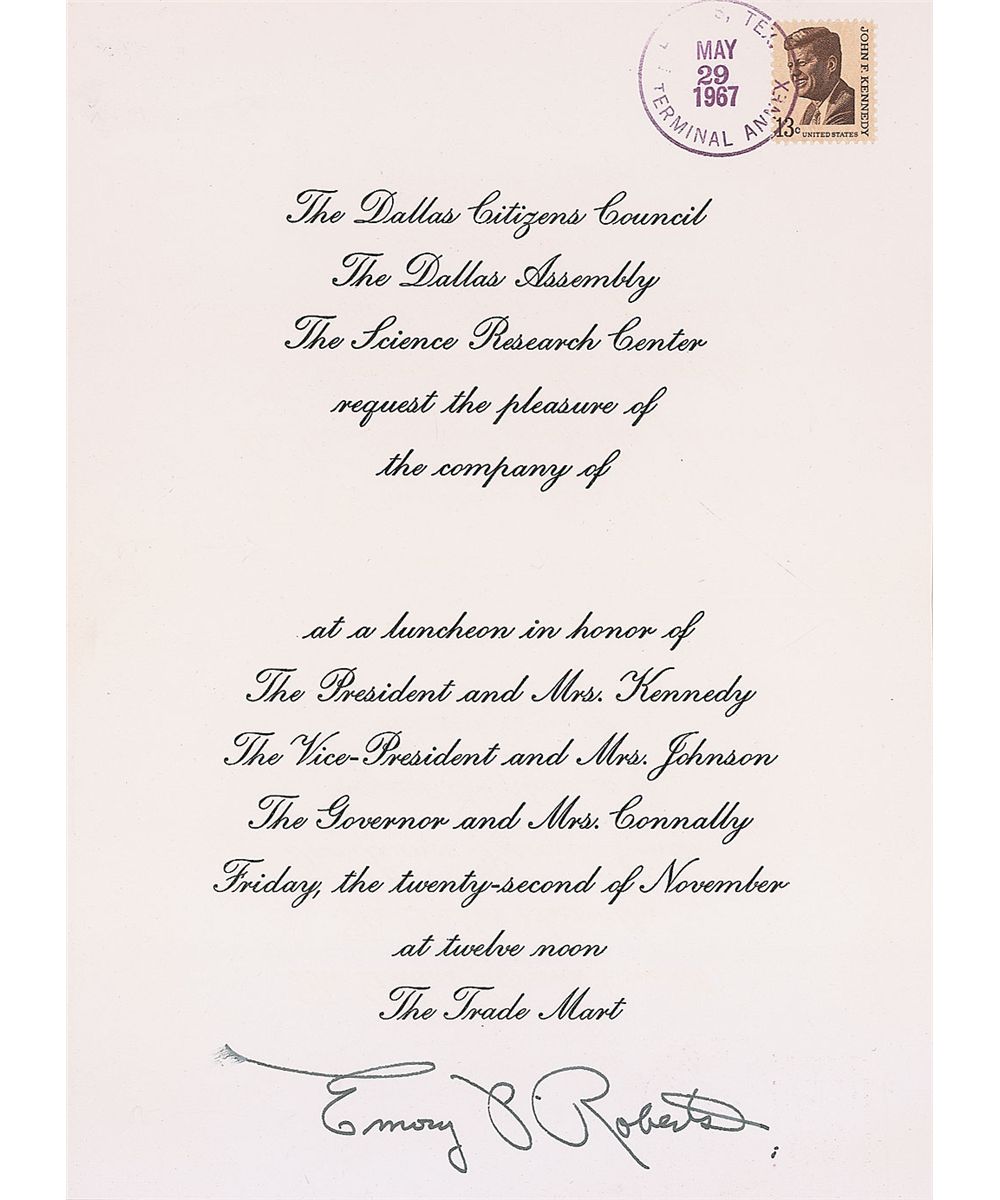 S, TEX.
MAY
29
1967
TERMINAL ANNEX
JOHN F. KENNEDY
13c UNITED STATES
The Dallas Citizens Council
The Dallas Assembly
The Science Research Center
request the pleasure of
the company of
at a luncheon in honor of
The President and Mrs. Kennedy
The Vice-President and Mrs. Johnson
The Governor and Mrs. Connally
Friday, the twenty-second of November
at twelve noon
The Trade Mart
Emory P. Roberts